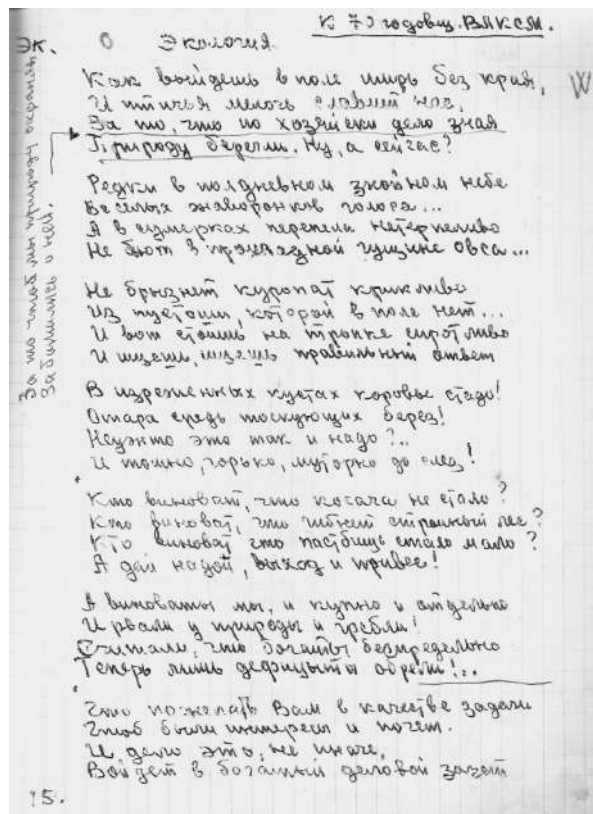 К 70 годовщ. ВЛКСМ.
ЭК. О Экология.
Как выйдешь в поле ширь без края,
И птичья мелочь славит нас,
За то, что по хозяйски дело зная
Природу берегли. Ну, а сейчас?
Редки в полдневном знойном небе
Весёлых жаворонков голоса...
А в сумерках перепела нетерпеливо
Не бьют в прохладной гущине овса...
Не брызнет куропат крикливо
Из пустоши, которой в поле нет...
И вот стоишь на тропке сиротливо
И ищешь, ищешь правильный ответ
В изреженных кустах коровье стадо!
Отара средь тоскующих берез!
Неужто это так и надо?..
И тошно, горько, муторно до слез!
Кто виноват, что косача не стало?
Кто виноват, что гибнет строиный лес?
Кто виноват что пастбищь стало мало?
А дай надой, выход и привес!
А виноваты мы, и купно и отдельно
И рвали у природы и гребли!
Считали, что богаты беспредельно
Теперь лишь дефициты обрели!..
Что пожелать Вам в качестве задачи
Чтоб были интересы и почет.
И дело это, не иначе,
Войдет в богатый деловой зачет
15.
За то чтоб мы природу охраняли
Заботились о ней.